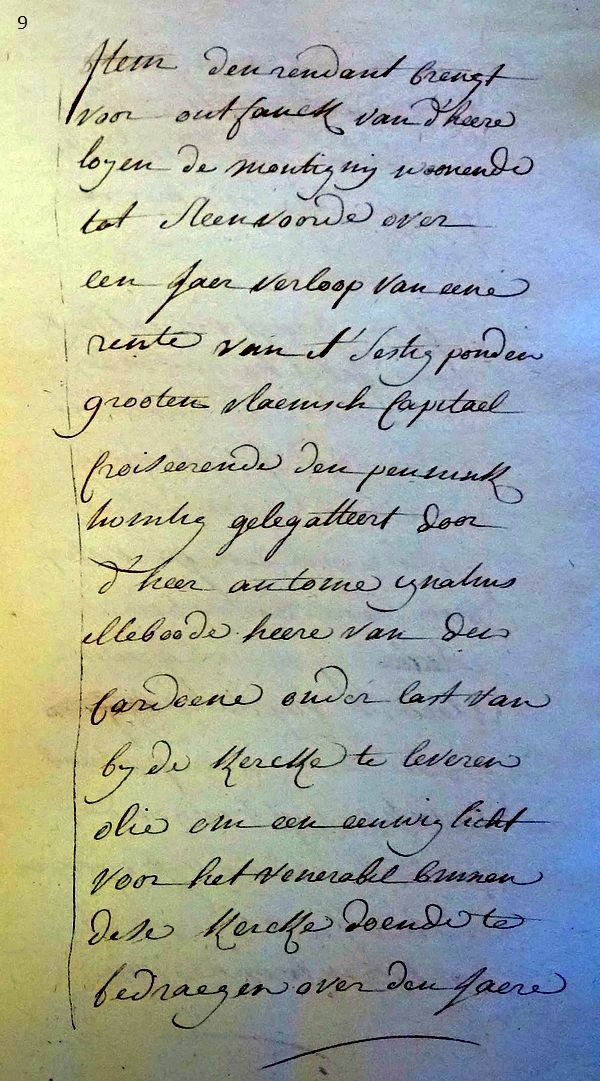 9
Item den rendant brengt
voor ontfanck van d'heere
loyen de montigny woonende
tot Steenvoorde over
een Jaer verloop van eene
rente van t' sestig ponden
grooten vlaemsch Capitael
Croiseerende den pennink
homtig gelegatteert door
d'heer antoine ignatius
Elleboode heere van den
Cardoene onder last van
by de Kercke te leveren
olie om een eeuwig licht
voor het venerabel binnen
dese Kercke doende te
bedraegen over den Jaere